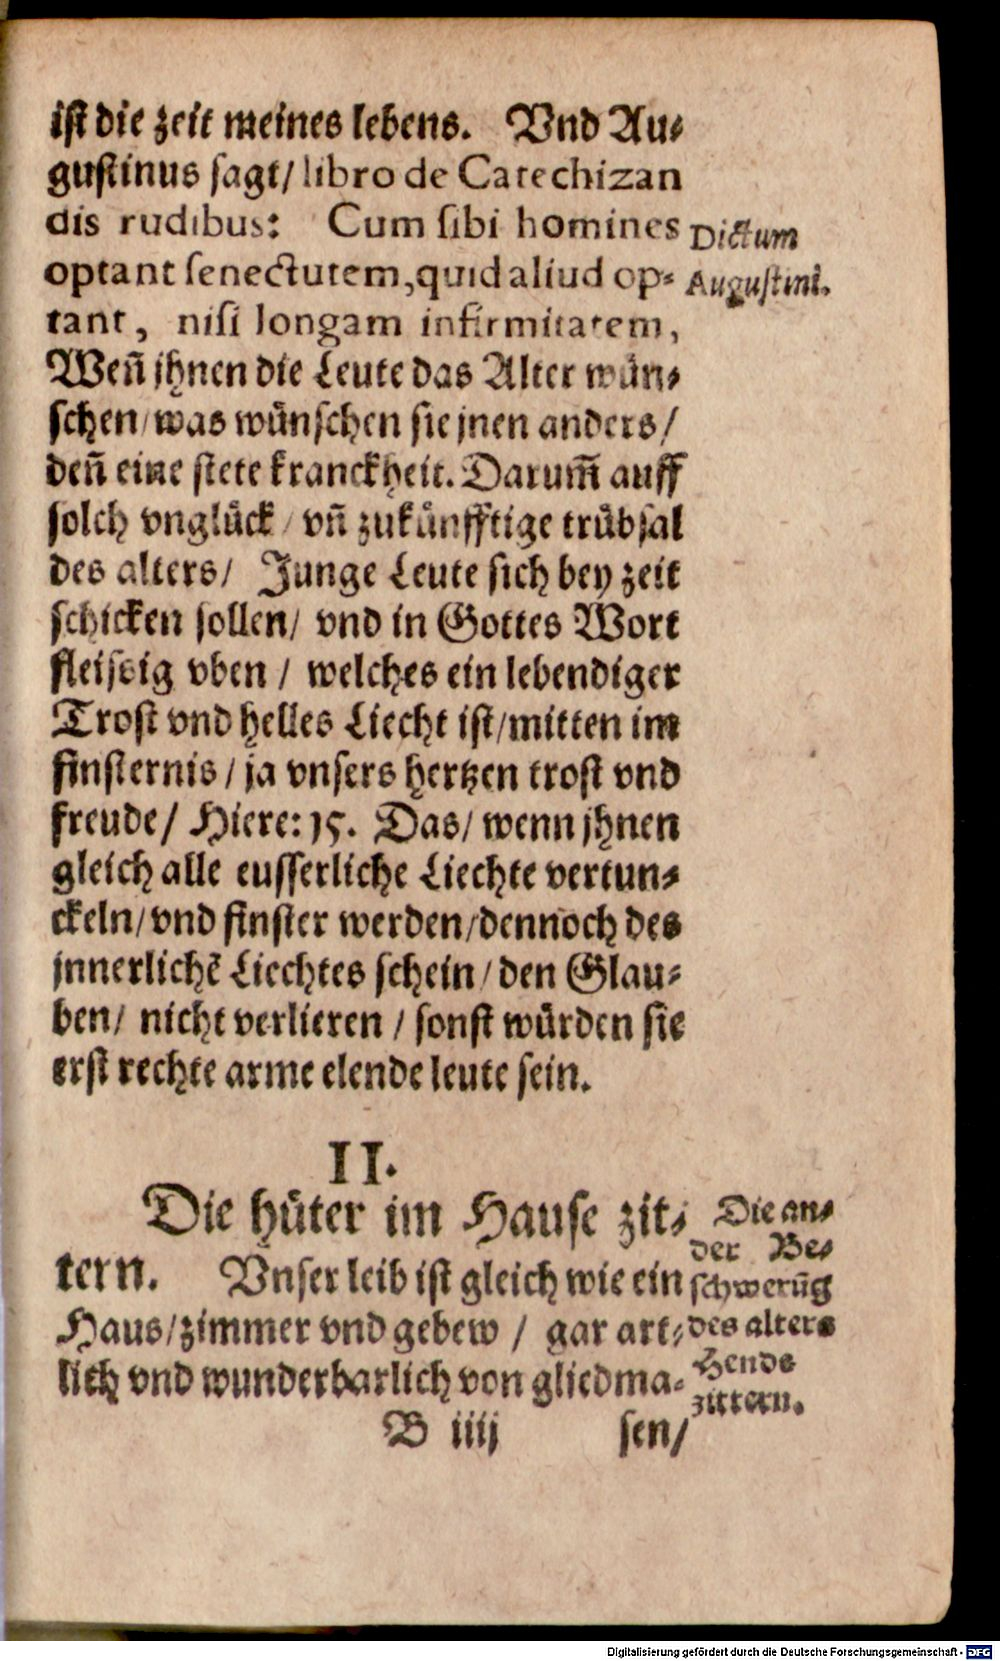 ist die zeit meines lebens. Vnd Au⸗
gustinus sagt/ libro de Catechizan
dis rudibus: Cum sibi homines
optant senectutem, quid aliud op⸗
tant, nisi longam infirmitatem,
Weñ jhnen die Leute das Alter wün⸗
schen/ was wünschen sie jnen anders/
deñ eine stete kranckheit. Darum̃ auff
solch vnglück/ vñ zukünfftige trübsal
des alters/ Junge Leute sich bey zeit
schicken sollen/ vnd in Gottes Wort
fleissig vben/ welches ein lebendiger
Trost vnd helles Liecht ist/ mitten im
finsternis/ ja vnsers hertzen trost vnd
freude/ Hiere: 15. Das/ wenn jhnen
gleich alle eusserliche Liechte vertun⸗
ckeln/ vnd finster werden/ dennoch des
jnnerlichẽ Liechtes schein/ den Glau⸗
ben/ nicht verlieren/ sonst würden sie
erst rechte arme elende leute sein.
Dictum
Augustini.
II.
Die hüter im Hause zit⸗
tern. Vnser leib ist gleich wie ein
Haus/ zimmer vnd gebew/ gar art⸗
lich vnd wunderbarlich von gliedma⸗
Die an⸗
der Be⸗
schwerũg
des alters
Hende
zittern.
B iiij
sen/
Digitalisierung gefördert durch die Deutsche Forschungsgemeinschaft - DFG